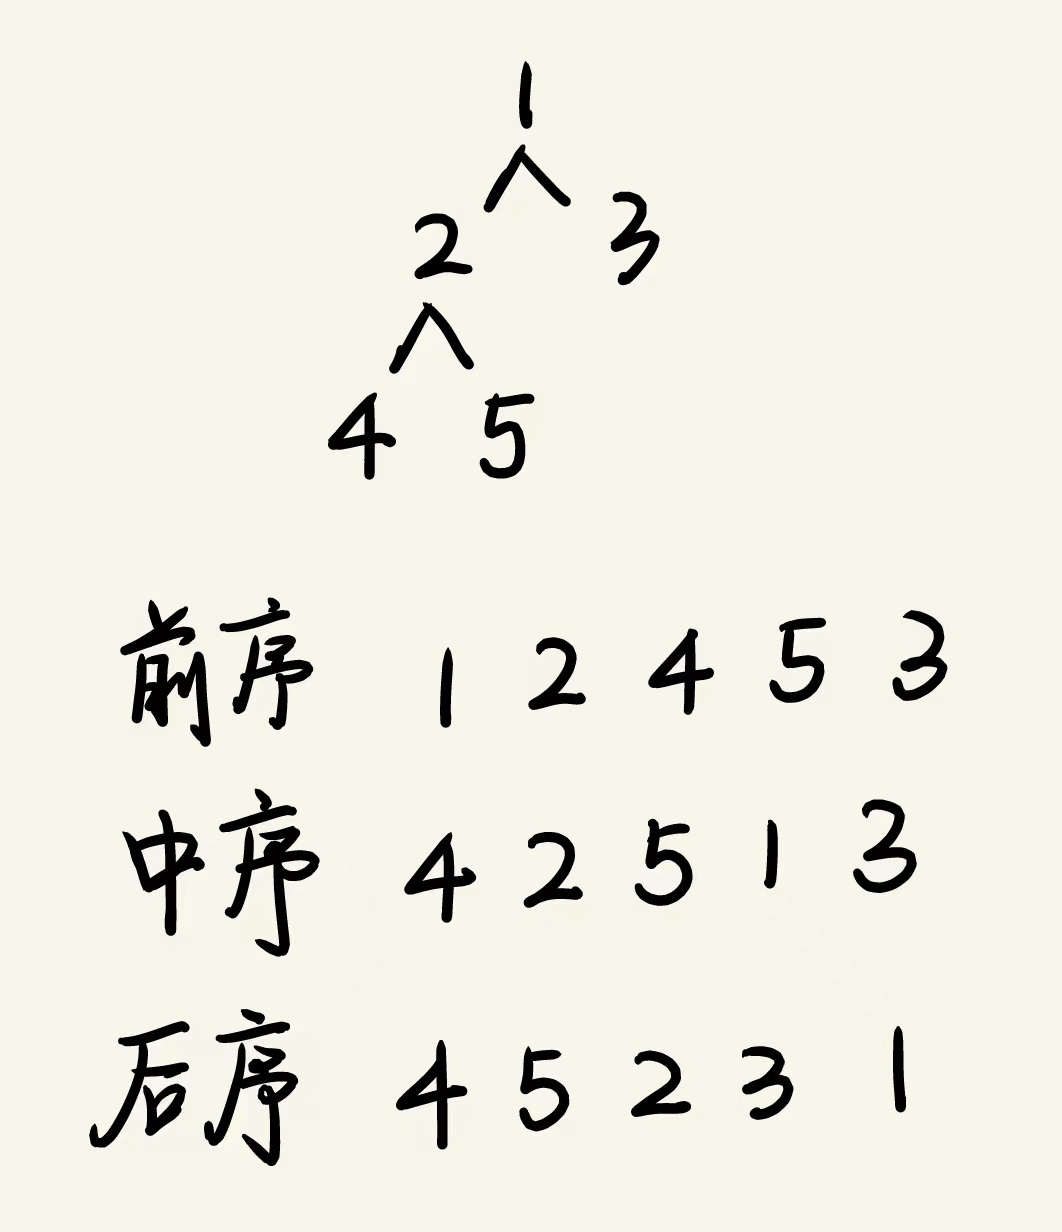 1
2 3
4 5
前序 1 2 4 5 3
中序 4 2 5 1 3
后序 4 5 2 3 1